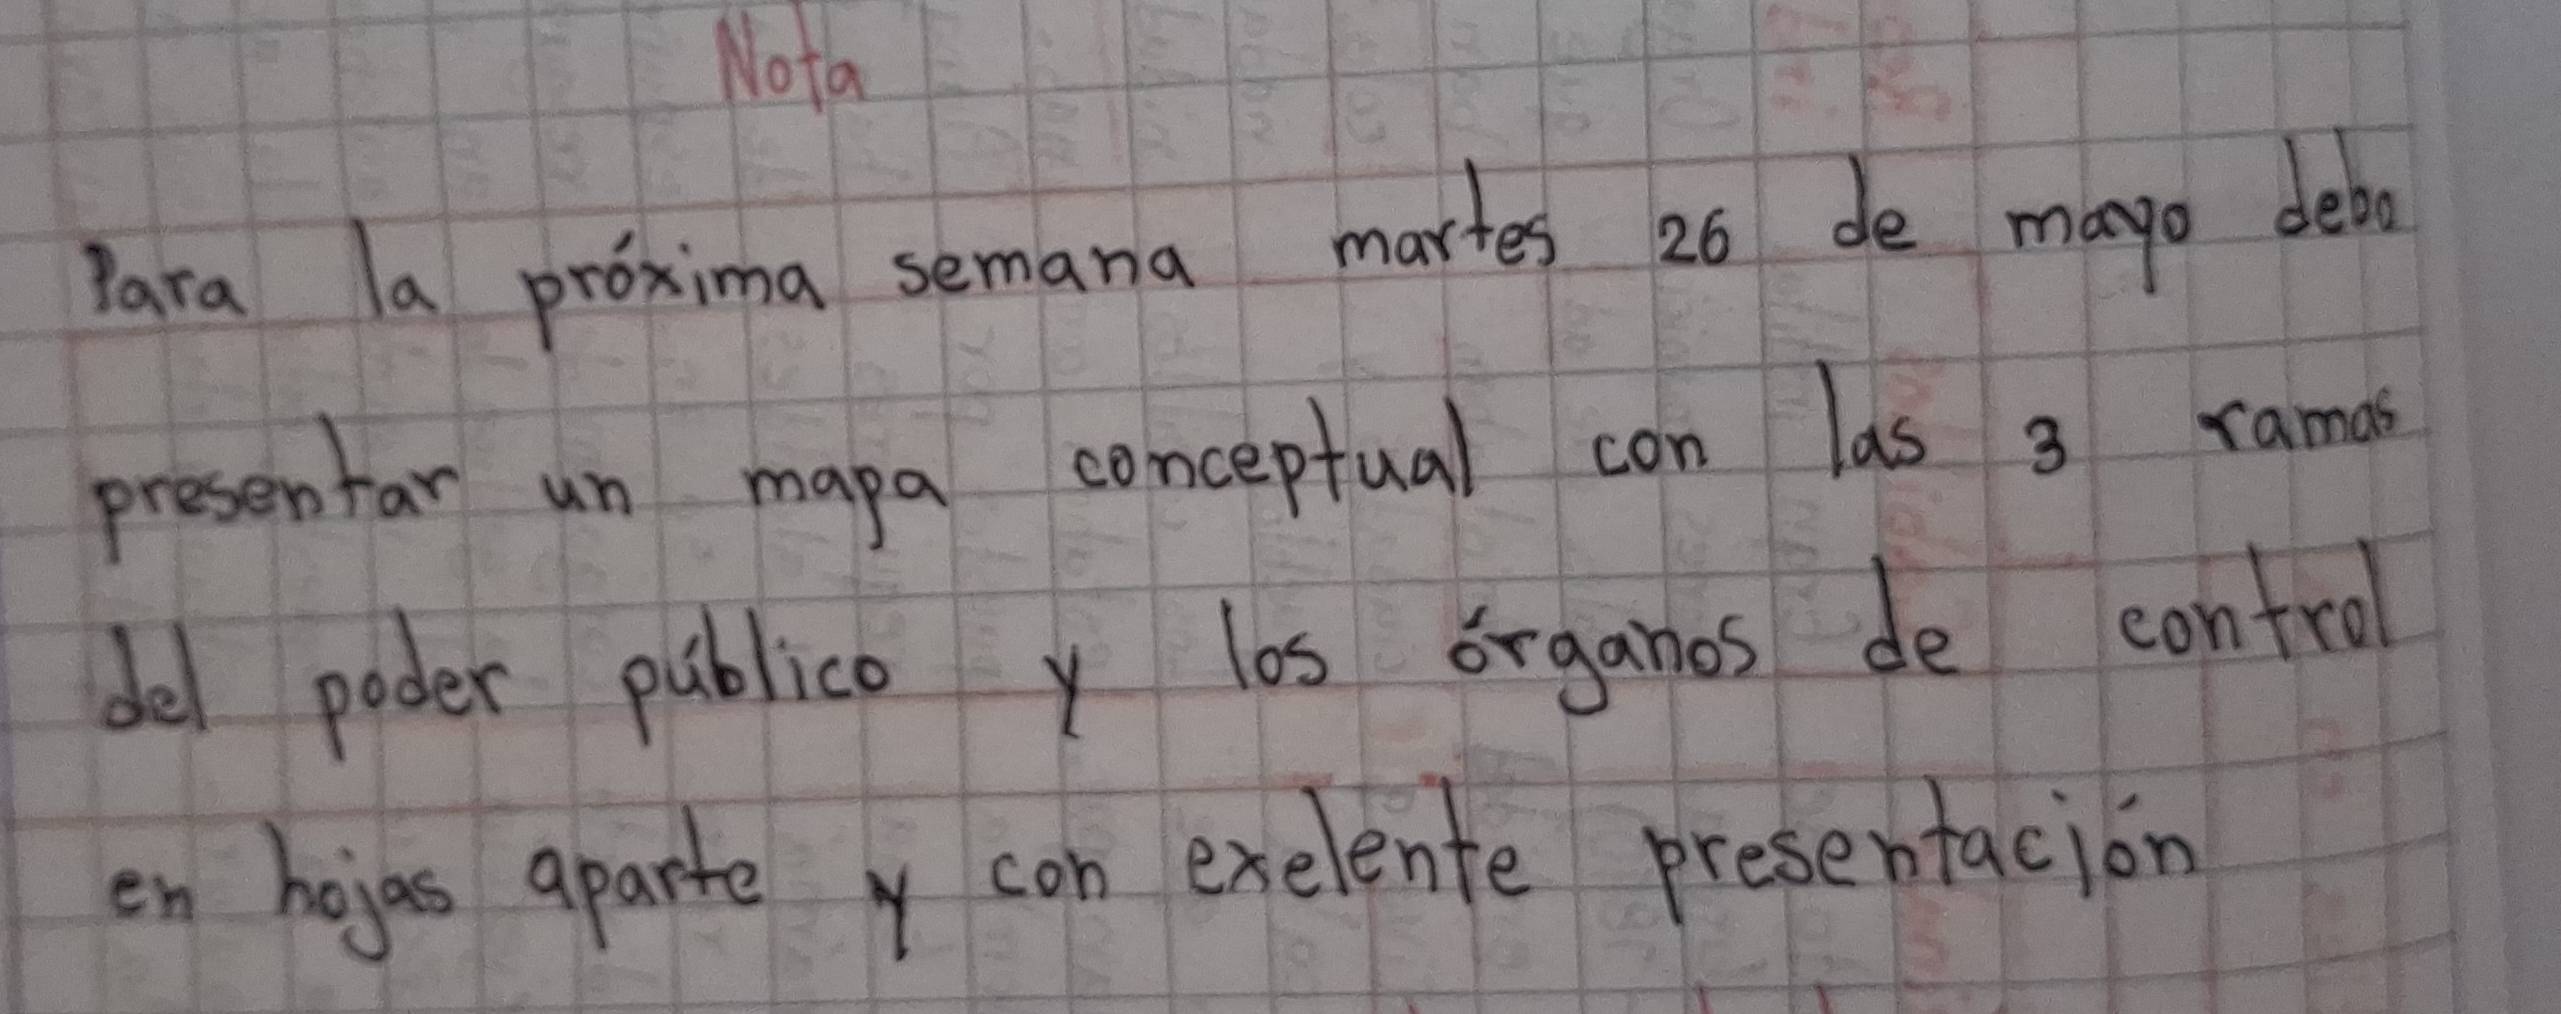 Nota
Para la próxima semana martes 26 de mayo debo
presentar un mapa conceptual con las 3 ramas
del poder público y los órganos de control
en hojas aparte y con exelente presentación